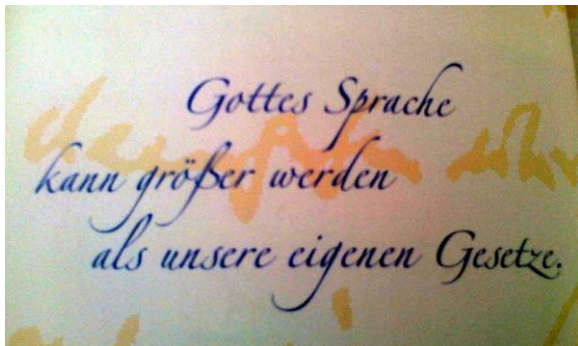 Gottes Sprache
kann größer werden
als unsere eigenen Gesetze.